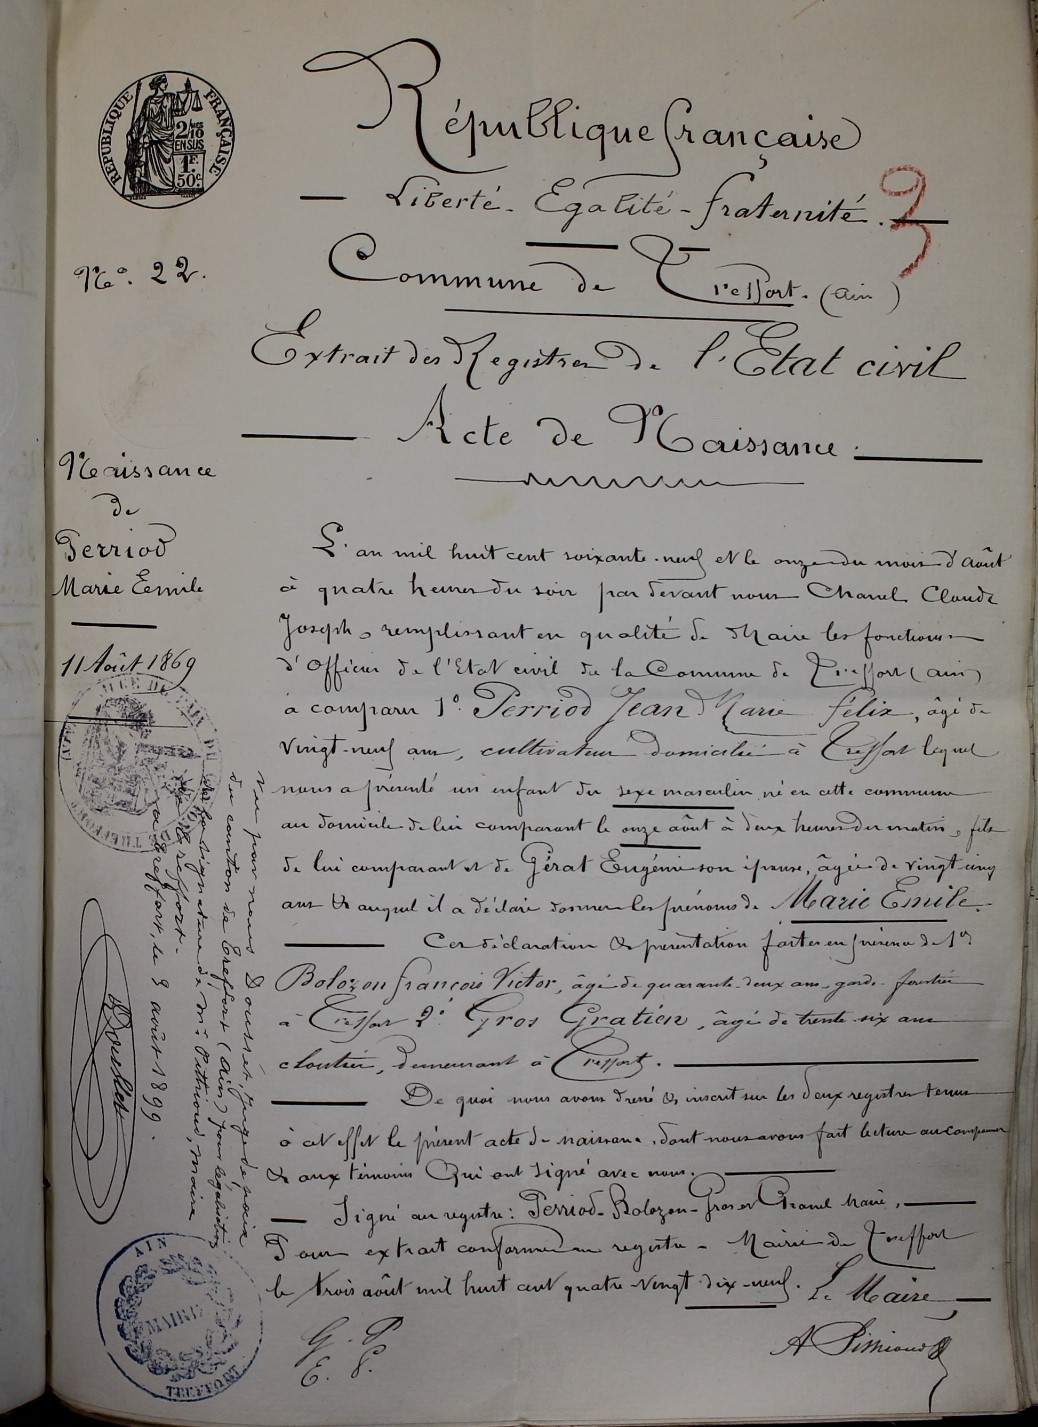 RÉPUBLIQUE FRANÇAISE
2/10 EN SUS
1F. 50c.
République française
Liberté - Egalité - fraternité.
3
N° 22.
Commune de Treffort. (Ain)
Extrait des Registres de l'Etat civil
Acte de Naissance.
Naissance
de
Perriod
Marie Emile
11 Août 1869
L'an mil huit cent soixante-neuf et le onze du mois d'Août
à quatre heures du soir par devant nous Chanel Claude
Joseph, remplissant en qualité de Maire les fonctions
d'Officier de l'Etat civil de la Commune de Treffort (ain)
a comparu 1° Perriod Jean Marie félix, âgé de
vingt-neuf ans, cultivateur domicilié à Treffort lequel
nous a présenté un enfant du sexe masculin, né en cette commune
au domicile de lui comparant le onze août à deux heures du matin, fils
de lui comparant et de Gérat Eugénie son épouse, âgée de vingt-cinq
ans & auquel il a déclaré donner les prénoms de Marie Emile.
Ces déclaration & présentation faites en présence de 1°
Bolozon françois Victor, âgé de quarante-deux ans, garde-forestier
à Treffort 2° Gros Gratien, âgé de trente-six ans
cloutier, demeurant à Treffort.
De quoi nous avons dressé & inscrit sur les deux registres tenus
à cet effet le présent acte de naissance, dont nous avons fait lecture au comparant
& aux témoins Qui ont signé avec nous.
Signé au registre: Perriod - Bolozon - Gros et Chanel Maire.
Pour extrait conforme au registre - Mairie de Treffort
le trois août mil huit cent quatre-vingt-dix-neuf. Le Maire
G. P.
E. P.
Vu par nous Dousset, juge de paix
du canton de Treffort (Ain) pour légalisation
de la signature de Mr Pithioud, maire
de Treffort.
à Treffort, le 3 août 1899.
Dousset
AIN
MAIRIE
TREFFORT